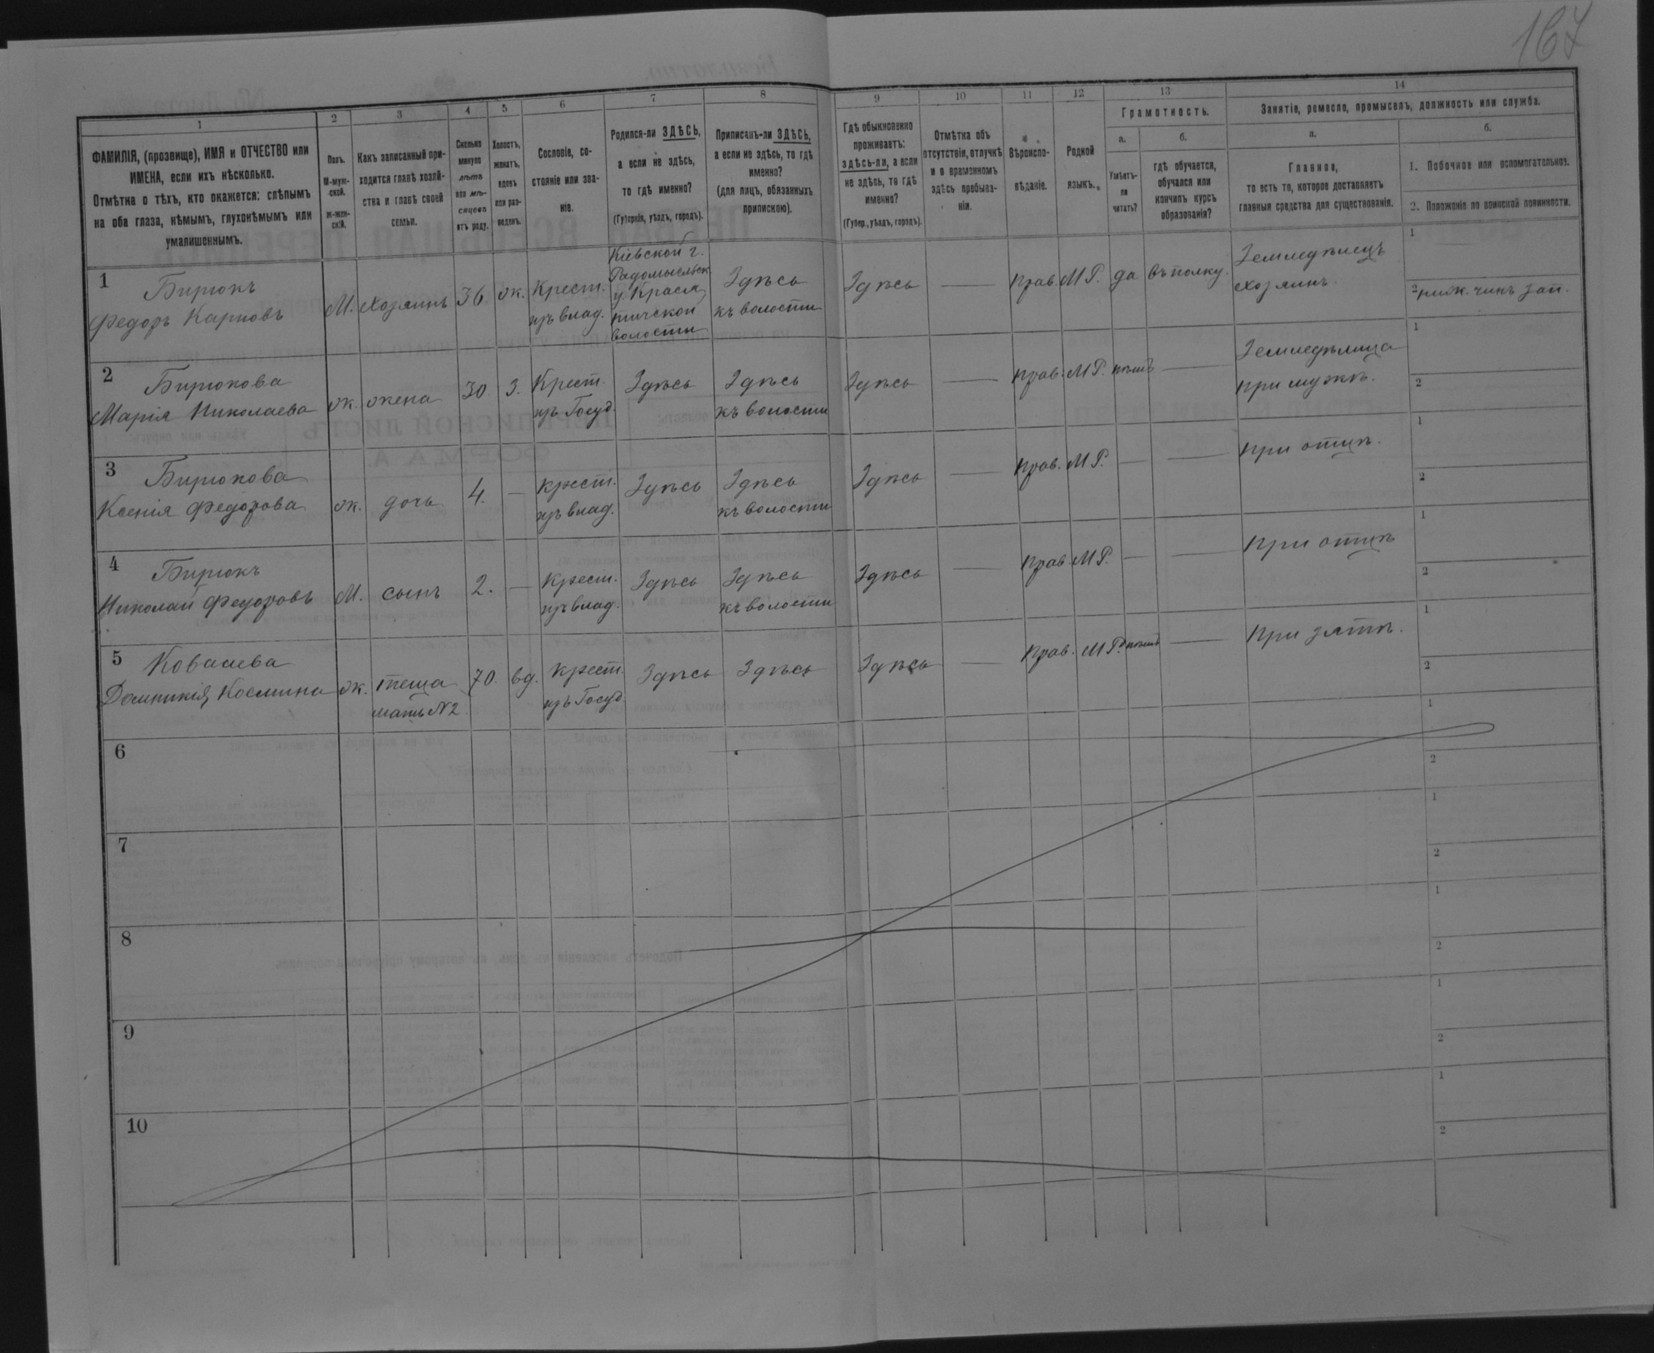 167
1
2
3
4
5
6
7
8
9
10
11
12
13
14
ФАМИЛІЯ, (прозвище), ИМЯ и ОТЧЕСТВО или
ИМЕНА, если ихъ нѣсколько.
Отмѣтка о тѣхъ, кто окажется: слѣпымъ
на оба глаза, нѣмымъ, глухонѣмымъ или
умалишеннымъ.
Полъ.
М-муж-
ской.
Ж-жен-
скій.
Какъ записанный при-
ходится главѣ хозяй-
ства и главѣ своей
семьи.
Сколько
минуло
лѣтъ
или мѣ-
сяцевъ
отъ роду.
Холостъ,
женатъ,
вдовъ
или раз-
веденъ.
Сословіе, со-
стояніе или зва-
ніе.
Родился-ли ЗДѢСЬ,
а если не здѣсь,
то гдѣ именно?
(Губернія, уѣздъ, городъ).
Приписанъ-ли ЗДѢСЬ,
а если не здѣсь, то гдѣ
именно?
(для лицъ, обязанныхъ
припискою).
Гдѣ обыкновенно
проживаетъ:
здѣсь-ли, а если
не здѣсь, то гдѣ
именно?
(Губер., уѣздъ, городъ).
Отмѣтка объ
отсутствіи, отлучкѣ
и о временномъ
здѣсь пребыва-
ніи.
Вѣроиспо-
вѣданіе.
Родной
языкъ.
Грамотность.
а.
Умѣетъ-
ли
читать?
б.
гдѣ обучается,
обучался или
кончилъ курсъ
образованія?
Занятіе, ремесло, промыселъ, должность или служба.
а.
Главное,
то есть то, которое доставляетъ
главныя средства для существованія.
б.
1. Побочное или вспомогательное.
2. Положеніе по воинской повинности.
1
Бирюкъ
Федоръ Карповъ
М.
хозяинъ
36
ж.
Крест.
изъ влад.
Кіевской г.
Радомысльск
у. Краса
тичской
волости
Здѣсь
къ волости
Здѣсь
Прав.
М.Р.
да
въ полку.
Земледѣлецъ
хозяинъ.
1
2 ниж. чинъ зап.
2
Бирюкова
Марія Николаева
ж.
жена
30
з.
Крест.
изъ Госуд.
Здѣсь
Здѣсь
къ волости
Здѣсь
Прав.
М.Р.
нѣтъ
Земледѣлица
при мужѣ.
1
2
3
Бирюкова
Ксенія Федорова
ж.
дочь
4.
крест.
изъ влад.
Здѣсь
Здѣсь
къ волости
Здѣсь
Прав.
М.Р.
при отцѣ.
1
2
4
Бирюкъ
Николай Федоровъ
М.
сынъ
2.
крест.
изъ влад.
Здѣсь
Здѣсь
къ волости
Здѣсь
Прав.
М.Р.
при отцѣ
1
2
5
Ковалева
Домникія Космина
ж.
теща
мать №2
70.
вд.
крест.
изъ Госуд
Здѣсь
Здѣсь
Здѣсь
Прав.
М.Р.
нѣтъ
при зятѣ.
1
2
6
1
2
7
1
2
8
1
2
9
1
2
10
1
2